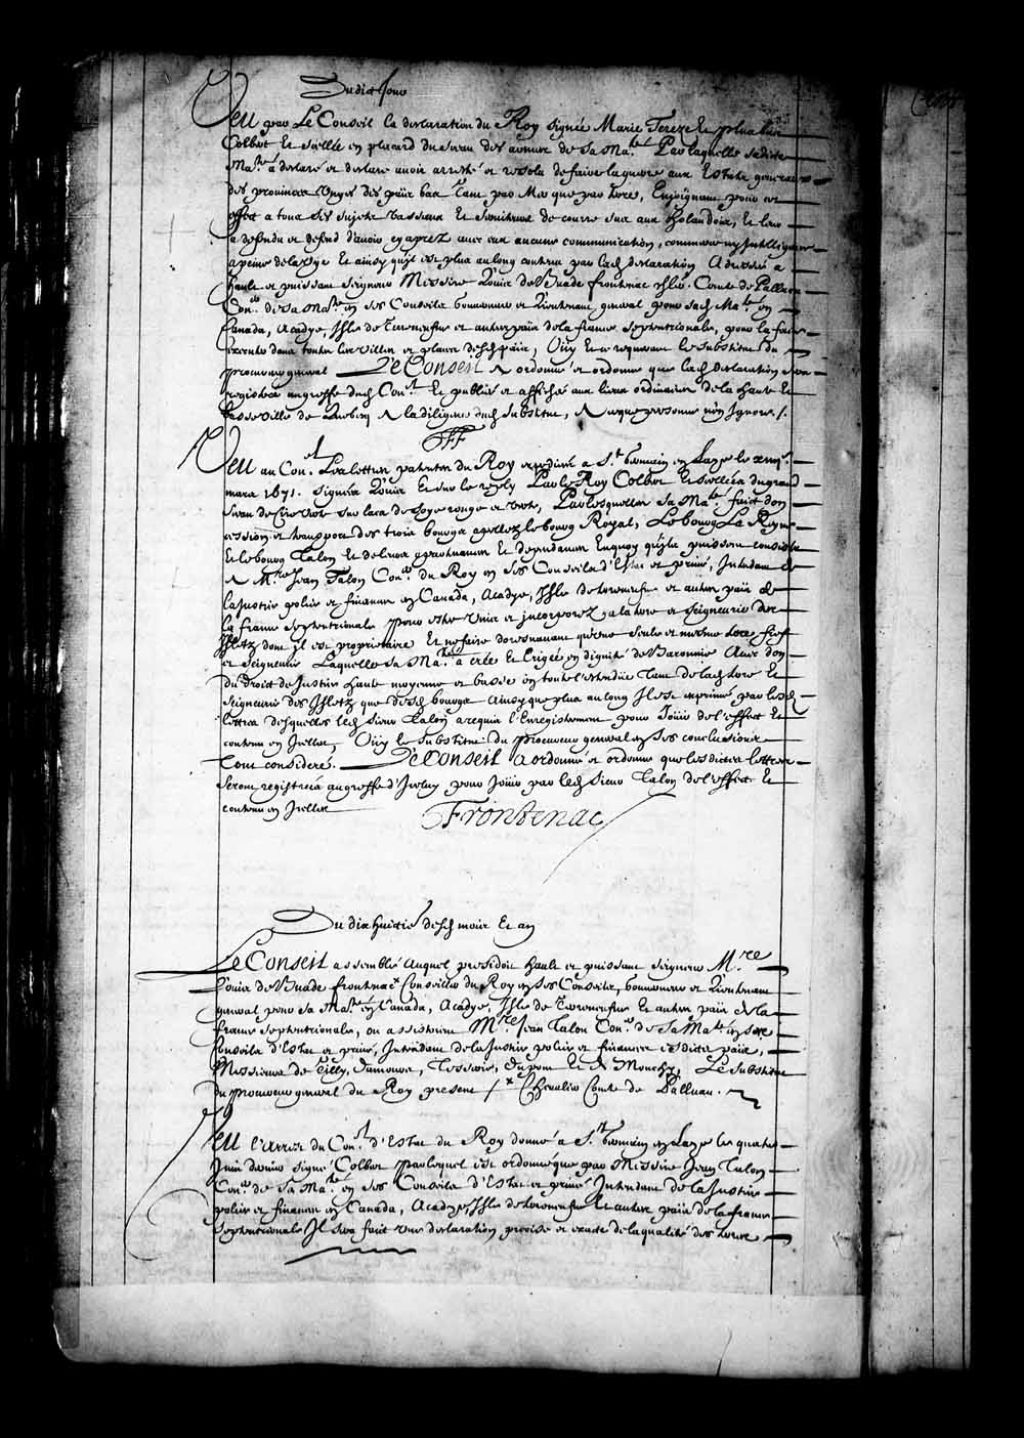 Dudict Jour
Veu par Le Conseil la declaration du Roy signée Marie Tereze Et plus bas
Colbert Et scellée en placard du sceau des armes de sa Ma.té Par laquelle sadicte
Ma.té a declaré et declare avoir arresté et resolu de faire la guerre aux Estats generaux
des provinces Unyes des païs bas Tant par Mer que par terre, Enjoignant pour cet
effect a tous ses sujects vassaux Et serviteurs de courre sus aux Holandois, Et leur
a defendu et defend d'avoir cy aprez avec eux aucune communication, commerce ny Intelligence
a peine de la vye Et ainsy qu'il est plus au long contenu par lad. declaration Adressée a
hault et puissant seigneur Messire Louis de Buade frontenac Comte de Palluau
Con.er de sa Ma.té en ses Conseils Gouverneur et Lieutenant general pour sad. Ma.té en
Canada, Acadye, Isle de Terreneufve et autres païs de la france septentrionale, pour la faire
executer dans toutes les villes et places desd. païs, Ouy Et ce requerant le substitut du
procureur general Le Conseil A ordonné et ordonne que lad. declaration sera
registrée au greffe dud. Con.l Et publiée et affichée aux lieux ordinaires de la haute Et
basse ville de Quebecq A la diligence dud. substitut, A ce que personne n'en Ignore /.
Veu au Con.l Les lettres patentes du Roy
mars 1671. signées Louis Et sur le reply Par le Roy Colbert Et scellées du grand
sceau de Cire verte sur lacs de soye rouge et verte, Par lesquelles sa Ma.té faict don
cession et transport des trois bourgs appellez le bourg Royal, Le bourg La Reyne
Et le bourg Talon Et de leurs appartenances Et dependances En quoy qu'ils puissent consister
A M.re Jean Talon Con.er du Roy en ses Conseils d'Estat et privé, Intendant de
la Justice police et finances en Canada, Acadye, Isle de terreneufve et autres païs de
la france septentrionale pour estre Unis et incorporez a la terre et seigneurie des
Isletz dont il est proprietaire Et ne faire doresnavant qu'une seule et mesme terre fief
et seigneurie Laquelle sa Ma.té a créé Et Erigée en dignité de Baronnie Avec don
du droict de Justice haute moyenne et basse en toute l'estendüe Tant de lad. terre Et
seigneurie des Isletz que desd. bourgs Ainsy que plus au long Il est exprimé par lesd.
lettres desquelles led. sieur Talon a requis l'Enregistrement pour Joüir de l'effect Et
contenu en Icelles, Ouy le substitut du procureur general en ses conclusions
Tout consideré. Le Conseil a ordonné et ordonne que lesdictes lettres
seront registrées au greffe d'Iceluy pour Joüir par led. sieur Talon de l'effect Et
contenu en Icelles
Frontenac
Du dix huictié desd. mois Et an
Le Conseil assemblé Auquel presidoit hault et puissant seigneur M.re
Louis de Buade frontenac x Conseiller du Roy en ses Conseils, Gouverneur et Lieutenant
general pour sa Ma.té en Canada, Acadye, Isle de Terreneufve Et autres païs de la
france septentrionale, ou assistoient M.re Jean Talon Con.er de sa Ma.té en ses
Conseils d'Estat et privé, Intendant de la Justice police et finances esdicts païs,
Messieurs de Tilly, Damours, Tesserie, Dupont Et de Mouchy, Le substitut
du procureur general du Roy present / x Chevalier Comte de Palluau.
Veu l'arrest du Con.l d'Estat du Roy donné a S.t Germain en Laye le quatre
Juin dernier signé Colbert par lequel est ordonné que par Messire Jean Talon
Con.er de sa Ma.té en ses Conseils d'Estat et privé Intendant de la Justice
police et finances en Canada, Acadye, Isle de terreneufve Et autres païs de la france
septentrionale Il sera faict une declaration precise et exacte de la qualité des terres